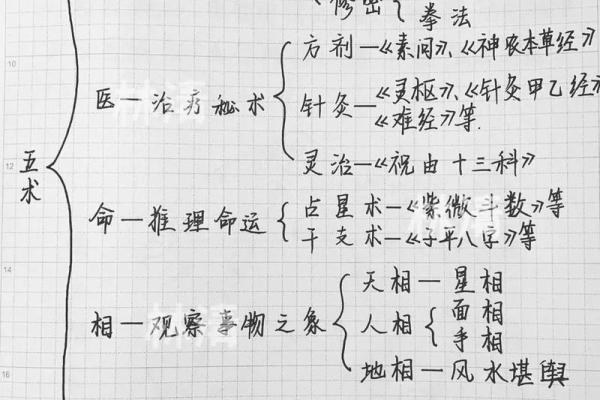 修密
拳法
方剂—《素问》、《神农本草经》
医—治疗秘术
针灸—《灵枢》、《针灸甲乙经》
《难经》等.
灵治—《祝由十三科》
五术
占星术—《紫微斗数》等
命—推理命运
干支术—《子平八字》等
天相—星相
面相
相—观察事物之象
人相
手相
地相—风水堪舆
10
12
14
16